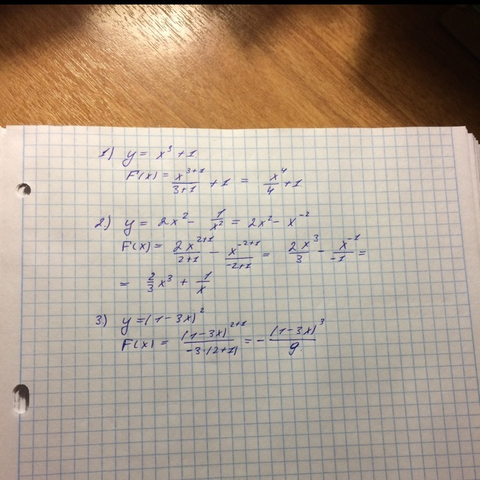 1) y = x³ + 1.
F(x) = x³⁺¹/3+1 + 1 = x⁴/4 + 1
2) y = 2x² - 1/x² = 2x² - x⁻²
F(x) = 2x²⁺¹/2+1 - x⁻²⁺¹/-2+1 = 2x³/3 - x⁻¹/-1 =
= 2/3 x³ + 1/x
3) y = (1-3x)²
F(x) = (1-3x)²⁺¹/-3·(2+1) = - (1-3x)³/9.